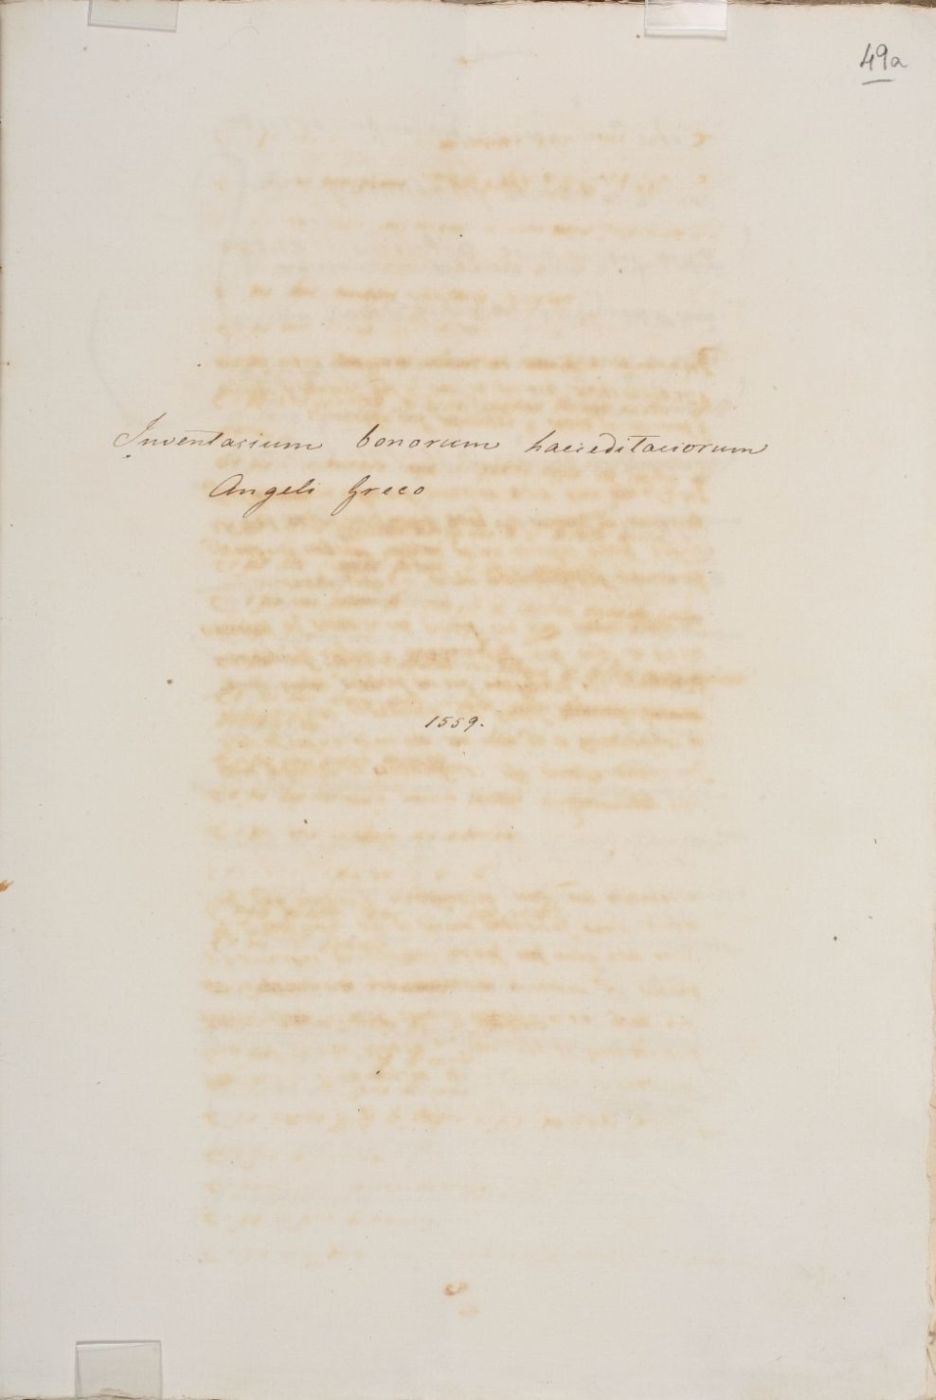 49a
Inventarium bonorum haereditariorum
Angeli Greco
1559.